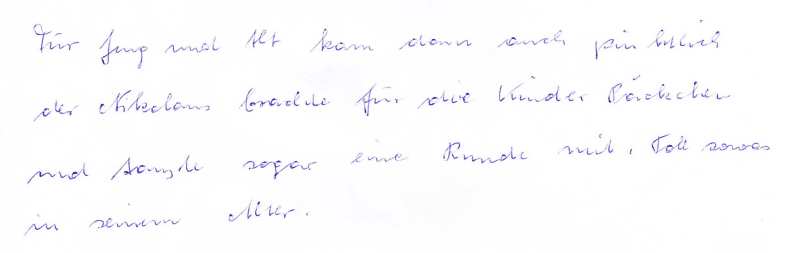 Für Jung und Alt kam dann auch pünktlich
der Nikolaus brachte für die Kinder Päckchen
und tanzte sogar eine Runde mit. Toll sowas
in seinem Alter.